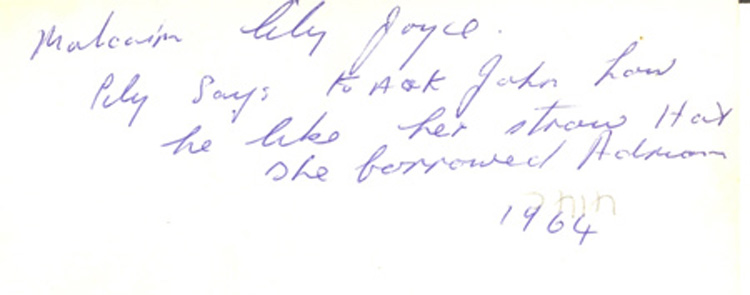 Malcolm Lily Joyce.
Lily Says to ASK John how
he like her straw Hat
she borrowed Adrian
1964